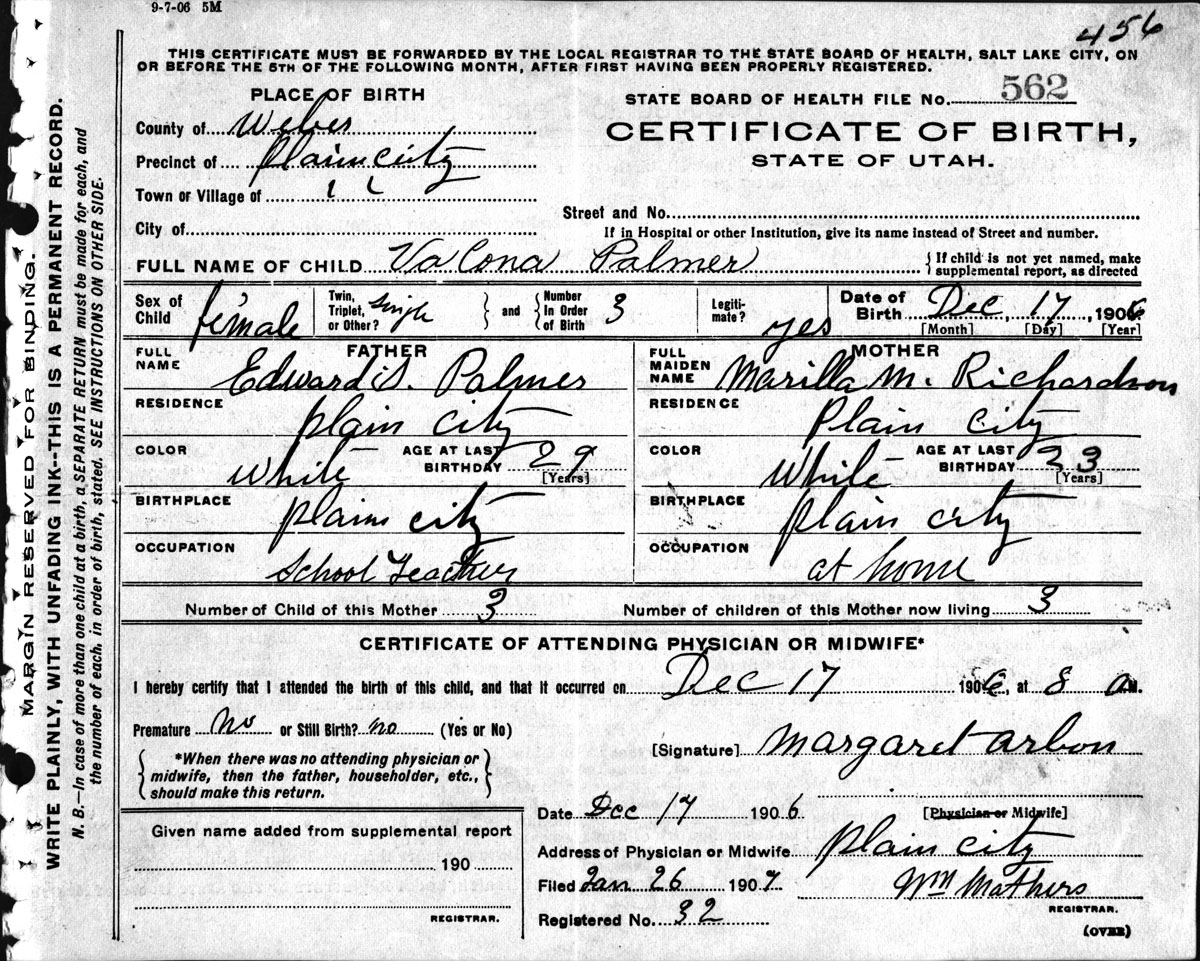 9-7-06 5M
456
THIS CERTIFICATE MUST BE FORWARDED BY THE LOCAL REGISTRAR TO THE STATE BOARD OF HEALTH, SALT LAKE CITY, ON
OR BEFORE THE 5TH OF THE FOLLOWING MONTH, AFTER FIRST HAVING BEEN PROPERLY REGISTERED.
PLACE OF BIRTH
County of Weber
Precinct of Plain city
Town or Village of " "
City of
STATE BOARD OF HEALTH FILE No. 562
CERTIFICATE OF BIRTH,
STATE OF UTAH.
Street and No.
If in Hospital or other Institution, give its name instead of Street and number.
FULL NAME OF CHILD VaCona Palmer {If child is not yet named, make
supplemental report, as directed
Sex of Child female
Twin, Triplet, or Other? Single } and { Number In Order of Birth 3
Legitimate? yes
Date of Birth Dec 17, 1906
[Month] [Day] [Year]
FATHER
FULL NAME Edward S. Palmer
RESIDENCE plain city
COLOR White AGE AT LAST BIRTHDAY 29 [Years]
BIRTHPLACE plain city
OCCUPATION School Teacher
MOTHER
FULL MAIDEN NAME Marilla M. Richardson
RESIDENCE Plain city
COLOR White AGE AT LAST BIRTHDAY 23 [Years]
BIRTHPLACE plain city
OCCUPATION at home
Number of Child of this Mother 3 Number of children of this Mother now living 3
CERTIFICATE OF ATTENDING PHYSICIAN OR MIDWIFE*
I hereby certify that I attended the birth of this child, and that it occurred on Dec 17 1906, at 8 a M.
Premature No or Still Birth? no (Yes or No)
[Signature] Margaret arbon
*When there was no attending physician or
midwife, then the father, householder, etc.,
should make this return.
Date Dec 17 1906 [Physician or Midwife]
Given name added from supplemental report
190
REGISTRAR.
Address of Physician or Midwife plain city
Filed Jan 26 1907 Wm Mathers
REGISTRAR.
Registered No. 32
(OVER)
MARGIN RESERVED FOR BINDING.
WRITE PLAINLY, WITH UNFADING INK--THIS IS A PERMANENT RECORD.
N. B.—In case of more than one child at a birth, a SEPARATE RETURN must be made for each, and
the number of each, in order of birth, stated. SEE INSTRUCTIONS ON OTHER SIDE.